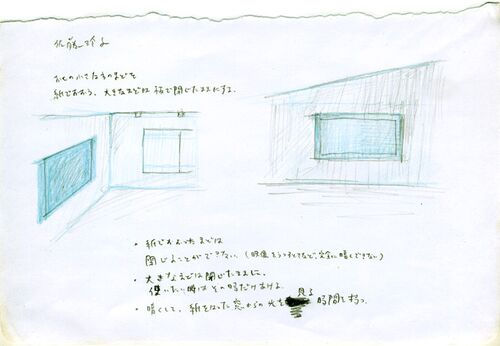 佐藤 玲子
紙でおおう。大きなまどは 板で閉じたままにする。
・紙でおおったまどは
閉じることができない。(映像をうつすなど、完全に暗くできない)
・大きなまどは閉じたままに。
使いたい時はその時だけあける。
・暗くして、紙をはった窓からの光を 見る 時間を持つ。